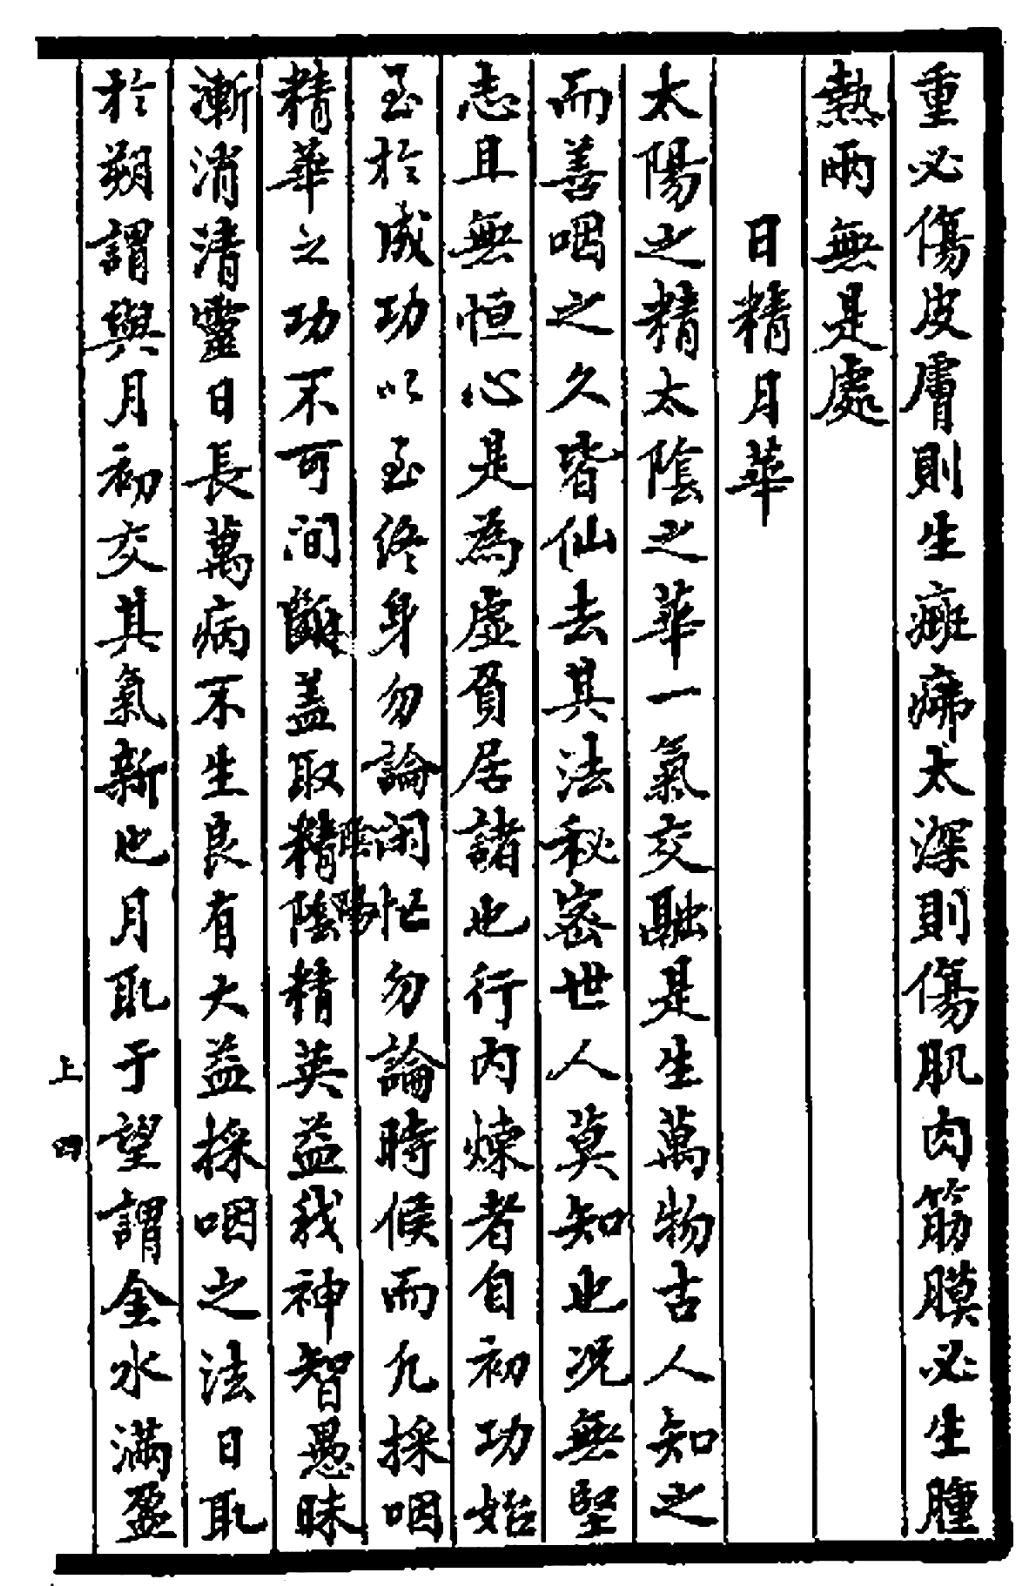 重必傷皮膚則生癍疿太深則傷肌肉筋膜必生腫
熱兩無是處
日精月華
太陽之精太陰之華一氣交融是生萬物古人知之
而善咽之久皆仙去其法秘密世人莫知也况無堅
志且無恒心是為虛負居諸也行内煉者自初功始
至於成功以至終身勿論闲忙勿論時候而凡採咽
陰陽
精華之功不可间斷盖取精陰精英益我神智愚昧
漸消清靈日長萬病不生良有大益採咽之法日取
於朔謂與月初交其氣新也月取于望謂金水滿盈
上 四